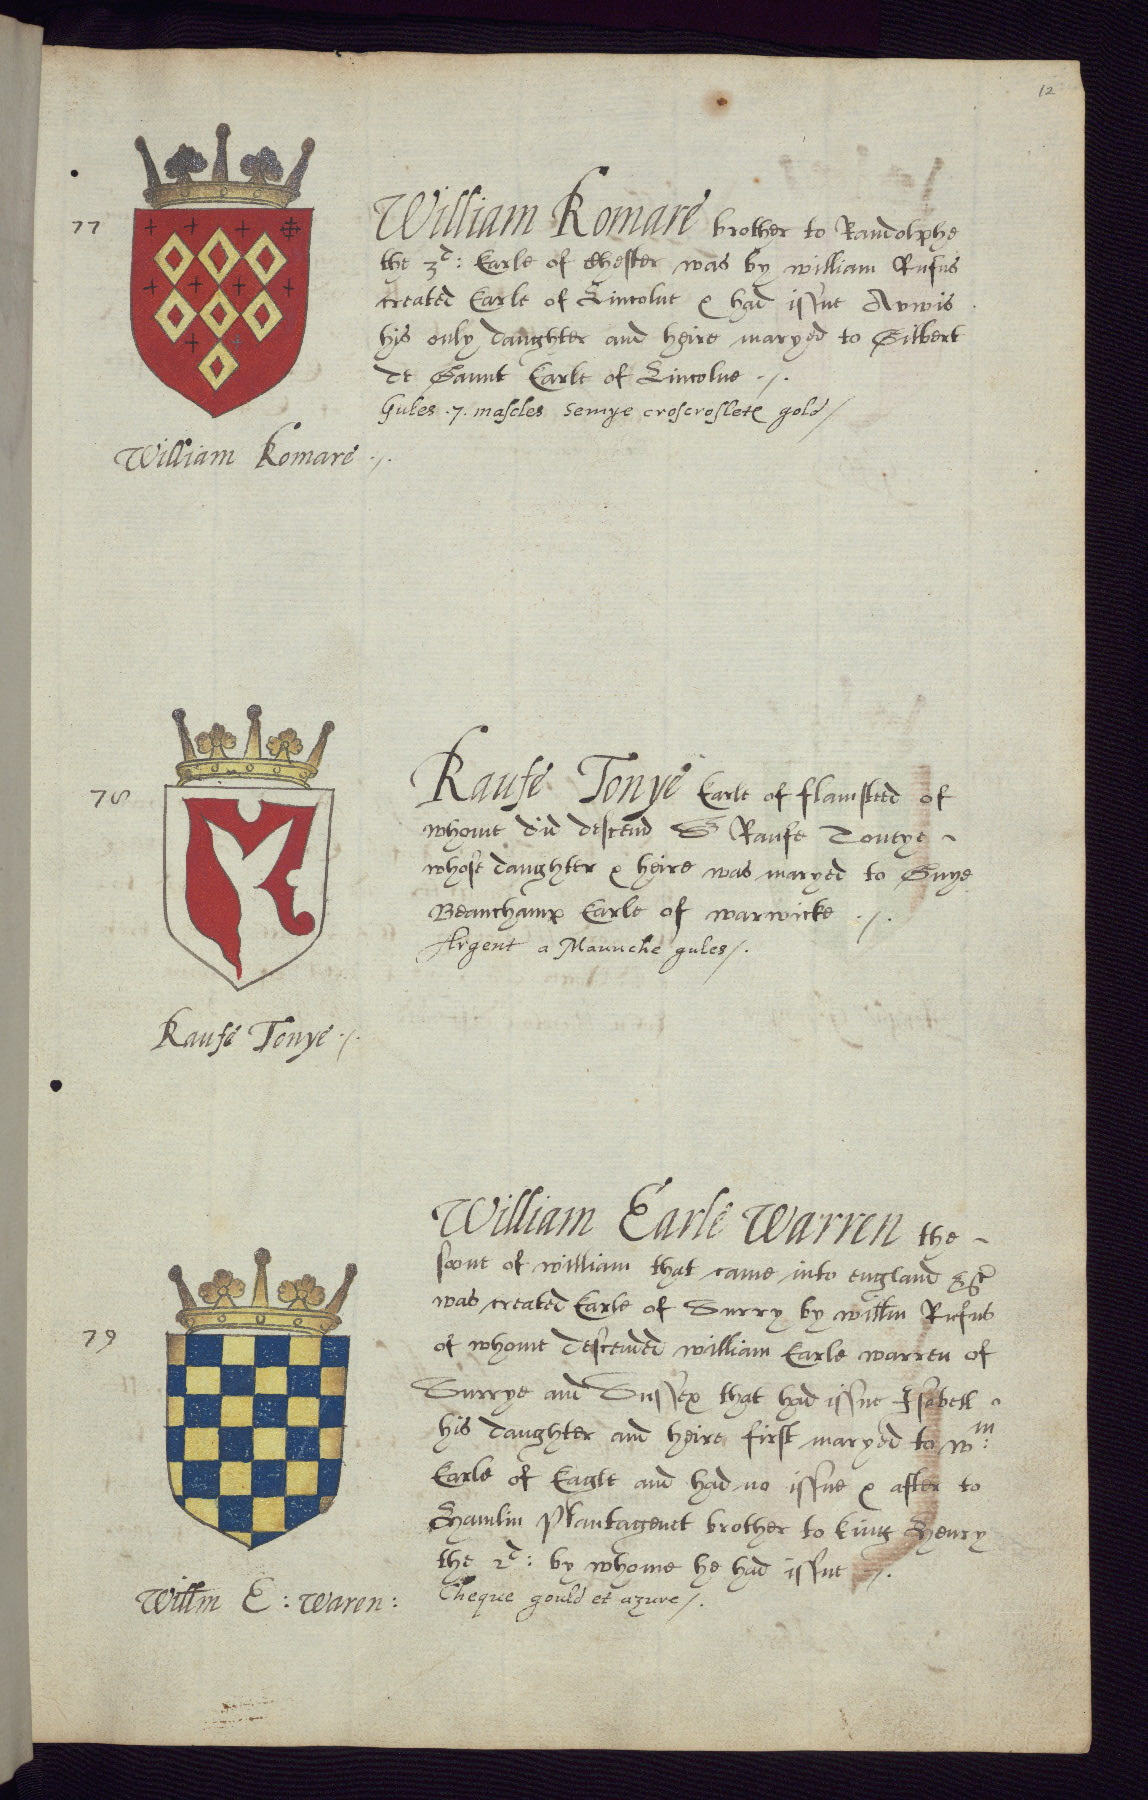 12
77
William Romare brother to Randolphe
the 3d: Earle of Chester was by william Rufus
created Earle of Lincolne & had issue Avwis
his only daughter and heire maryed to Gilbert
de Gaunt Earle of Lincolne ./.
Gules .7. mascles Semye croscroslets gold/
William Romare ./.
78
Raufe Tonye Earle of flamsteed of
whome did descend Sr Raufe Toneye ~
whose daughter & heire was maryed to Guye
Beauchamp Earle of warwicke ./.
Argent a Maunche gules/.
Raufe Tonye ./.
William Earle Warren the ~
sonne of william that came into england &c
was created Earle of Surry by willm Rufus
79
of whome descended william Earle warren of
Surrye and Sussex that had issue Isabell ~
his daughter and heire first maryed to wm:
Earle of Eagle and had no issue & after to
Hamlin Plantagenet brother to king Henry
the 2d: by whome he had issue ./.
Cheque gould et azure/.
Willm E: Waren: